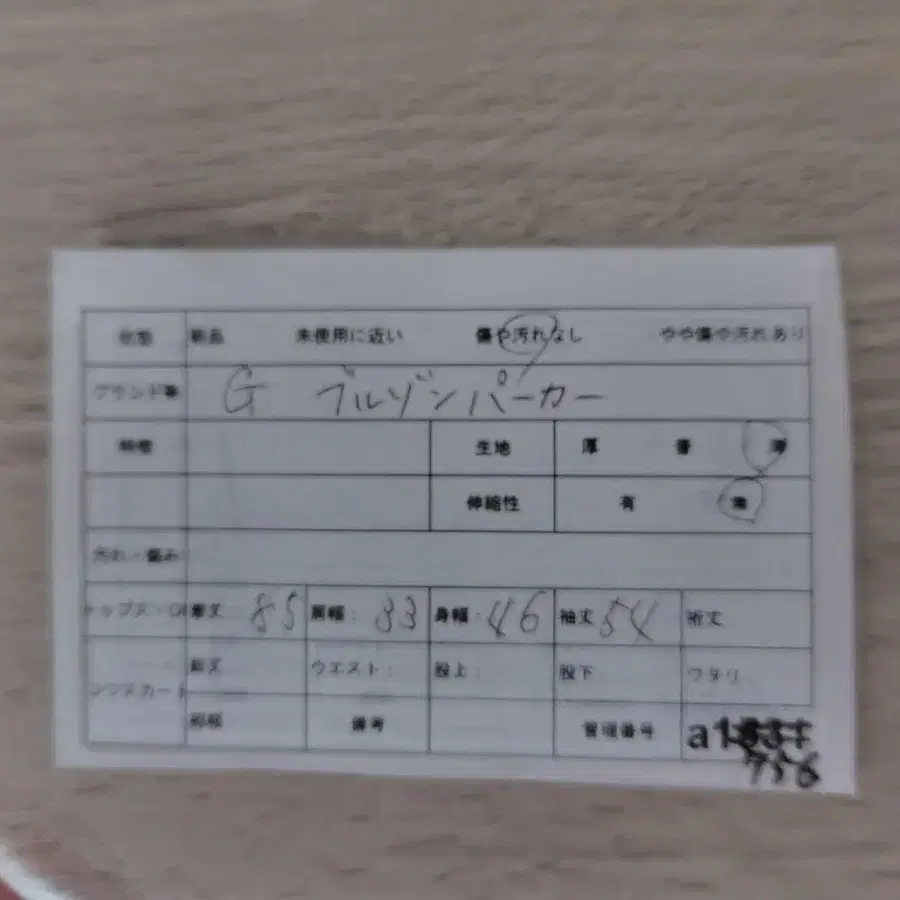 状態 新品 未使用に近い 傷や汚れなし やや傷や汚れあり
ブランド等 G ブルゾンパーカー
特徴 生地 厚 普 薄
伸縮性 有 無
汚れ・傷み
着丈 85 肩幅: 33 身幅: 46 袖丈 54 裄丈
総丈 ウエスト: 股上: 股下 ワタリ
裾幅 備考 管理番号 a1
756